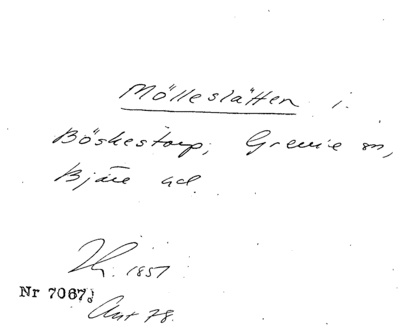 Mölleslätten i
Böskestorp, Grevie sn,
Bjäre hd
Th. 1857
Nr 7067.
Ant 78.